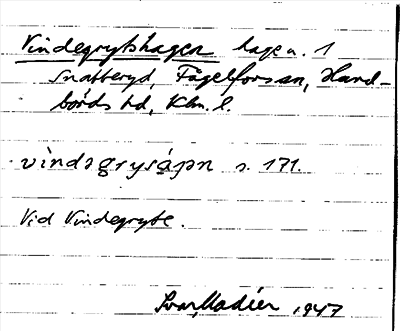 Vindegrytshagen hage n. 1
Snatteryd, Fagelfors sn, Hand-
börds hd, Klm. l.
vindəgrysápn s. 171.
Vid Vindegryte.
Ivar Modéer 1947